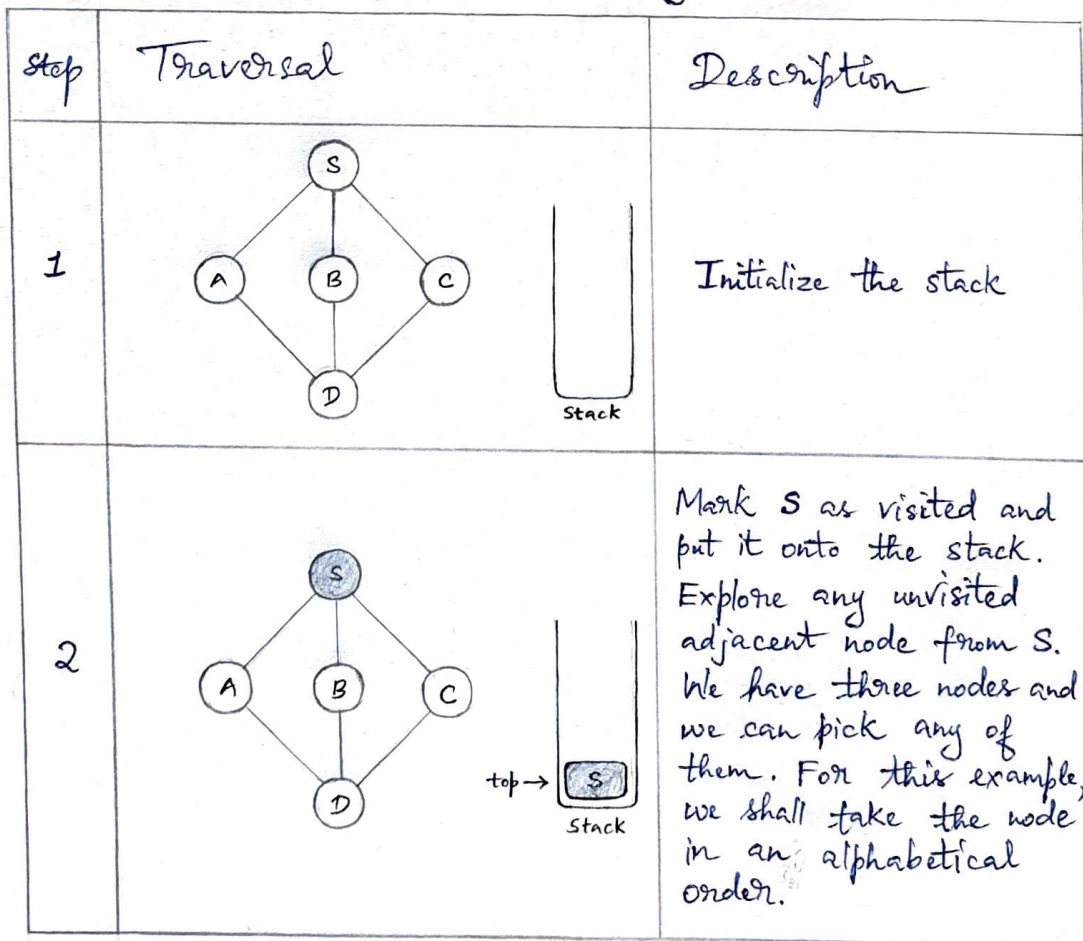 Step
Traversal
Description
1
S
A
B
C
D
Stack
Initialize the stack
2
S
A
B
C
D
top→
S
Stack
Mark S as visited and
put it onto the stack.
Explore any unvisited
adjacent node from S.
We have three nodes and
we can pick any of
them. For this example,
we shall take the node
in an alphabetical
order.